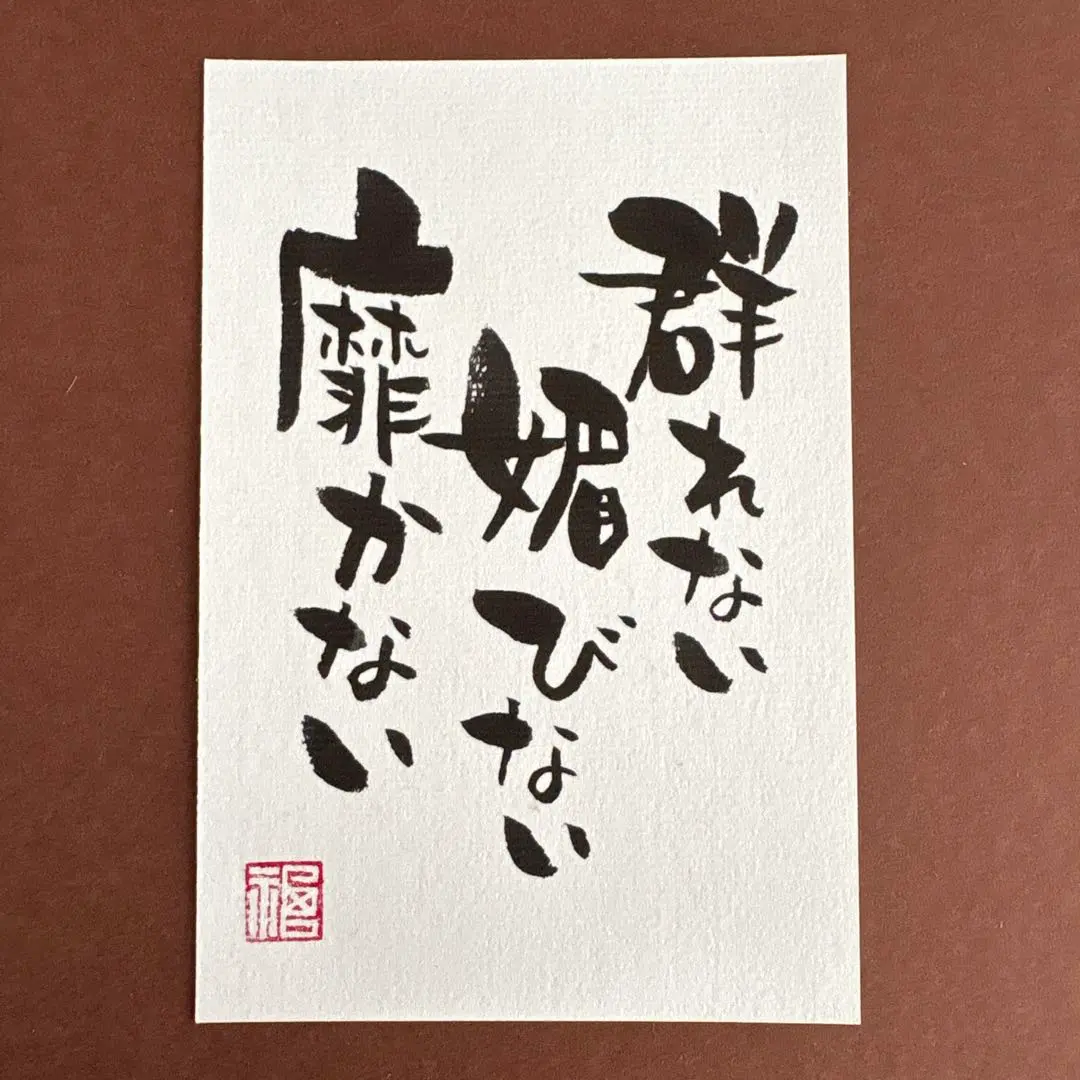 群れない
媚びない
靡かない